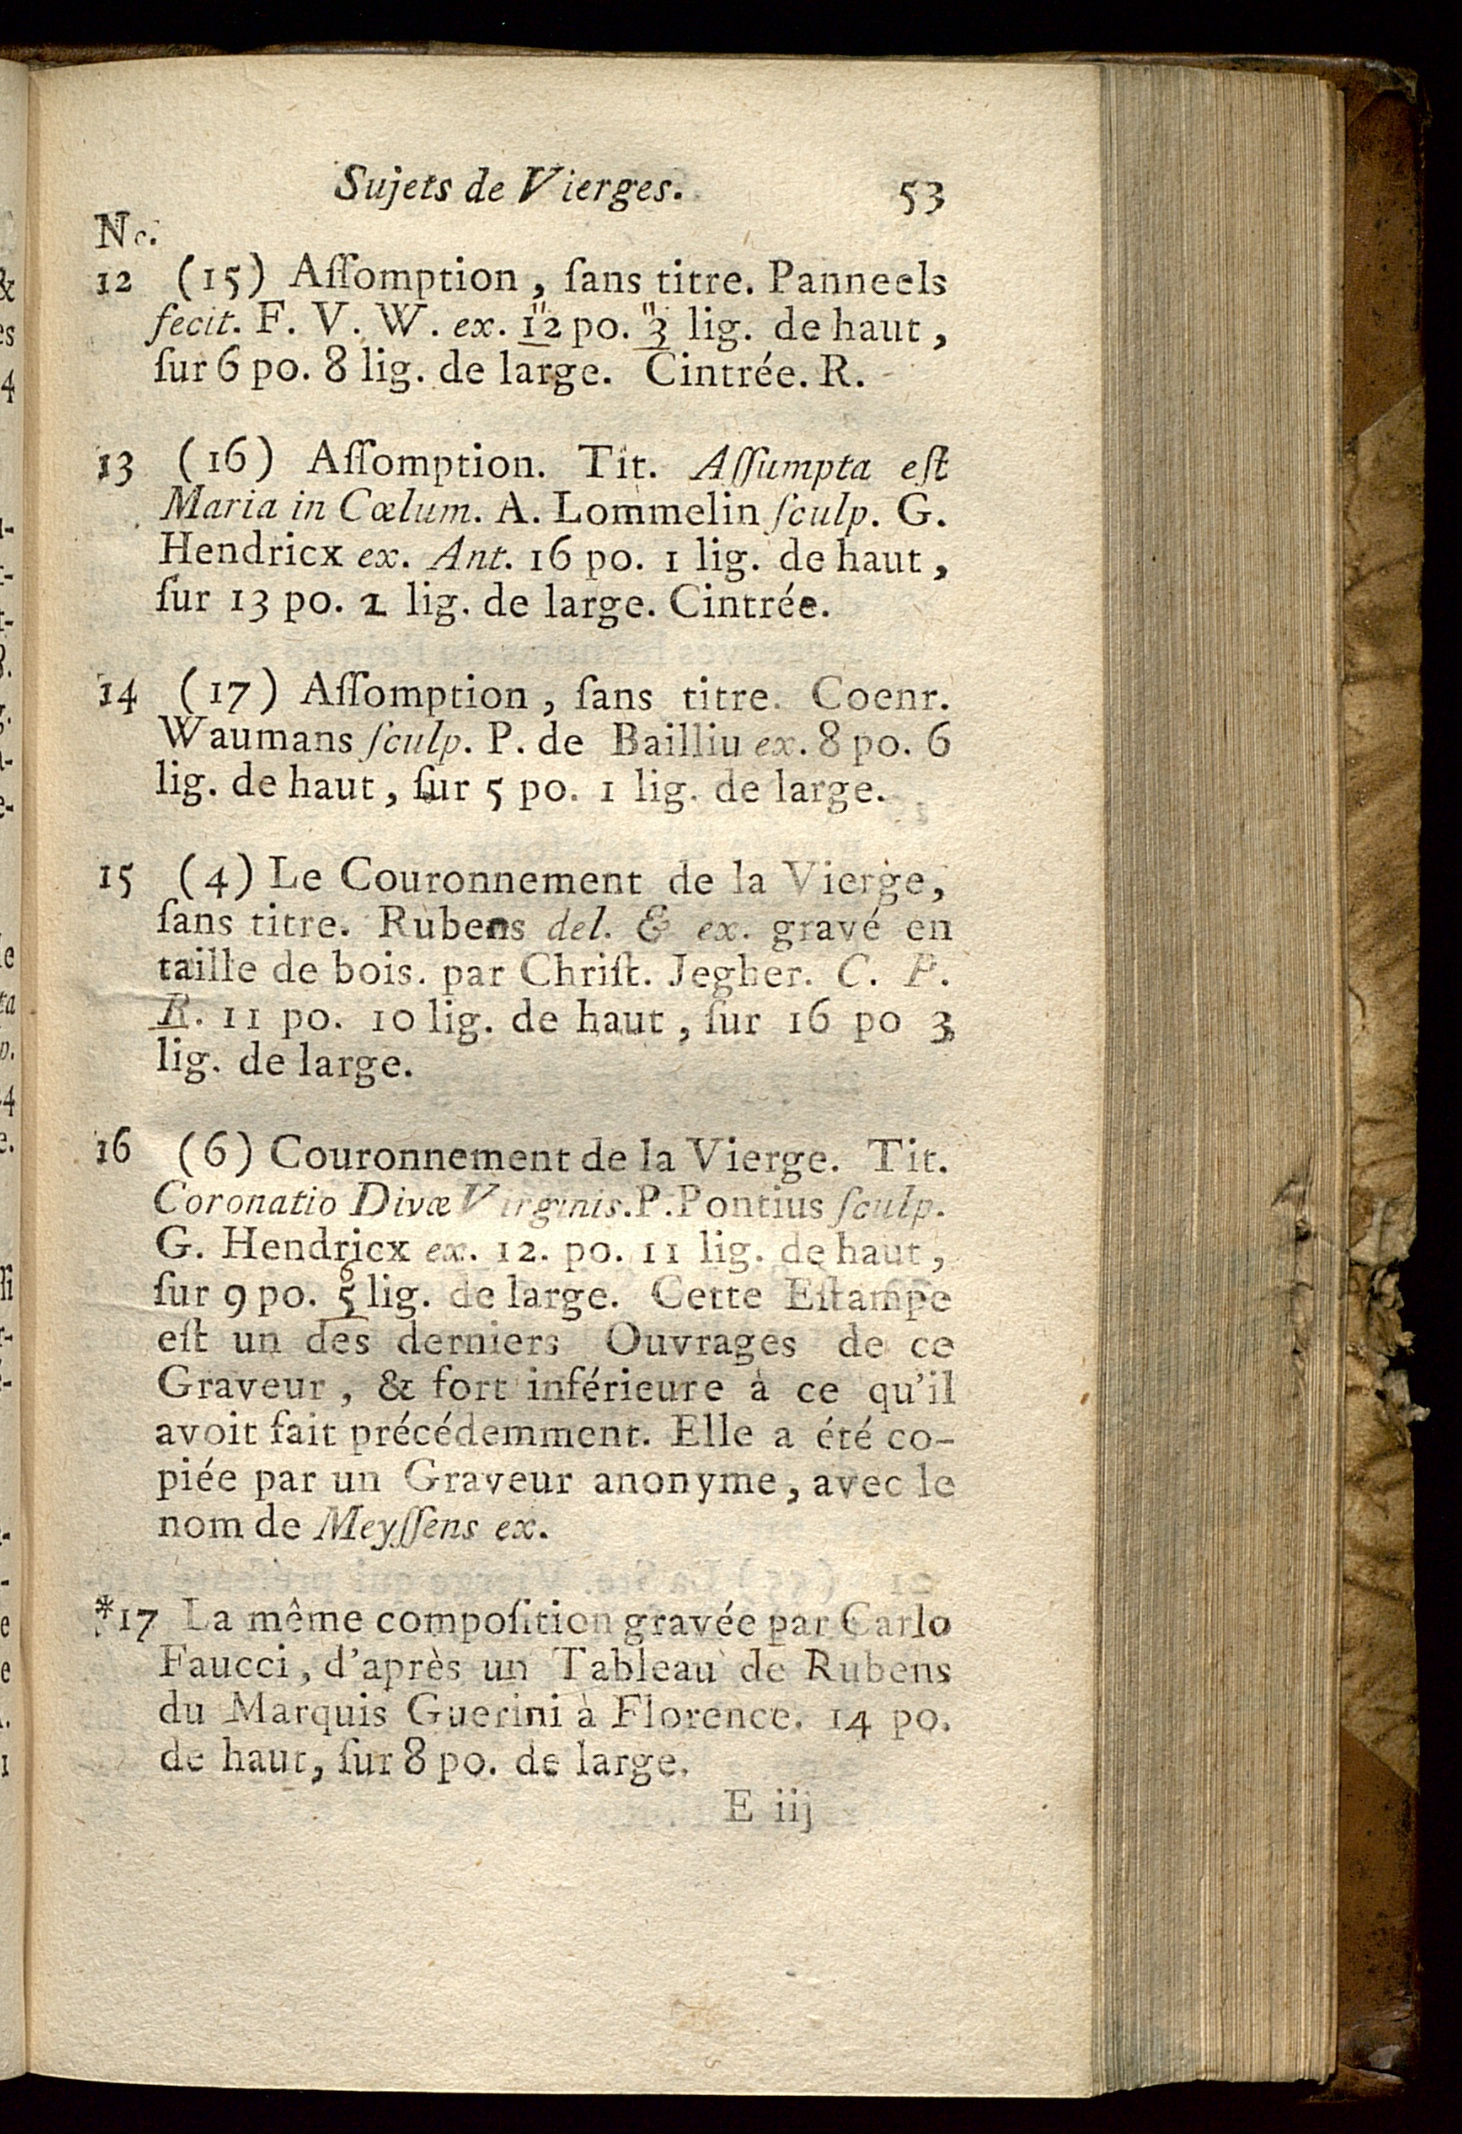 Sujets de Vierges. 53
No.
12 (15) Aſſomption, ſans titre. Panneels
fecit. F. V. W. ex. 12 po. 3 lig. de haut,
ſur 6 po. 8 lig. de large. Cintrée. R.
13 (16) Aſſomption. Tit. Aſſumpta eſt
Maria in Cœlum. A. Lommelin ſculp. G.
Hendricx ex. Ant. 16 po. 1 lig. de haut,
ſur 13 po. 2 lig. de large. Cintrée.
14 (17) Aſſomption, ſans titre. Coenr.
Waumans ſculp. P. de Bailliu ex. 8 po. 6
lig. de haut, ſur 5 po. 1 lig. de large.
15 (4) Le Couronnement de la Vierge,
ſans titre. Rubens del. & ex. gravé en
taille de bois. par Chriſt. Jegher. C. P.
R. 11 po. 10 lig. de haut, ſur 16 po 3
lig. de large.
16 (6) Couronnement de la Vierge. Tit.
Coronatio Divæ Virginis. P. Pontius ſculp.
G. Hendricx ex. 12. po. 11 lig. de haut,
6
ſur 9 po. 5 lig. de large. Cette Eſtampe
eſt un des derniers Ouvrages de ce
Graveur, & fort inférieure à ce qu'il
avoit fait précédemment. Elle a été co-
piée par un Graveur anonyme, avec le
nom de Meyſſens ex.
*17 La même compoſition gravée par Carlo
Faucci, d'après un Tableau de Rubens
du Marquis Guerini à Florence. 14 po.
de haut, ſur 8 po. de large.
E iij